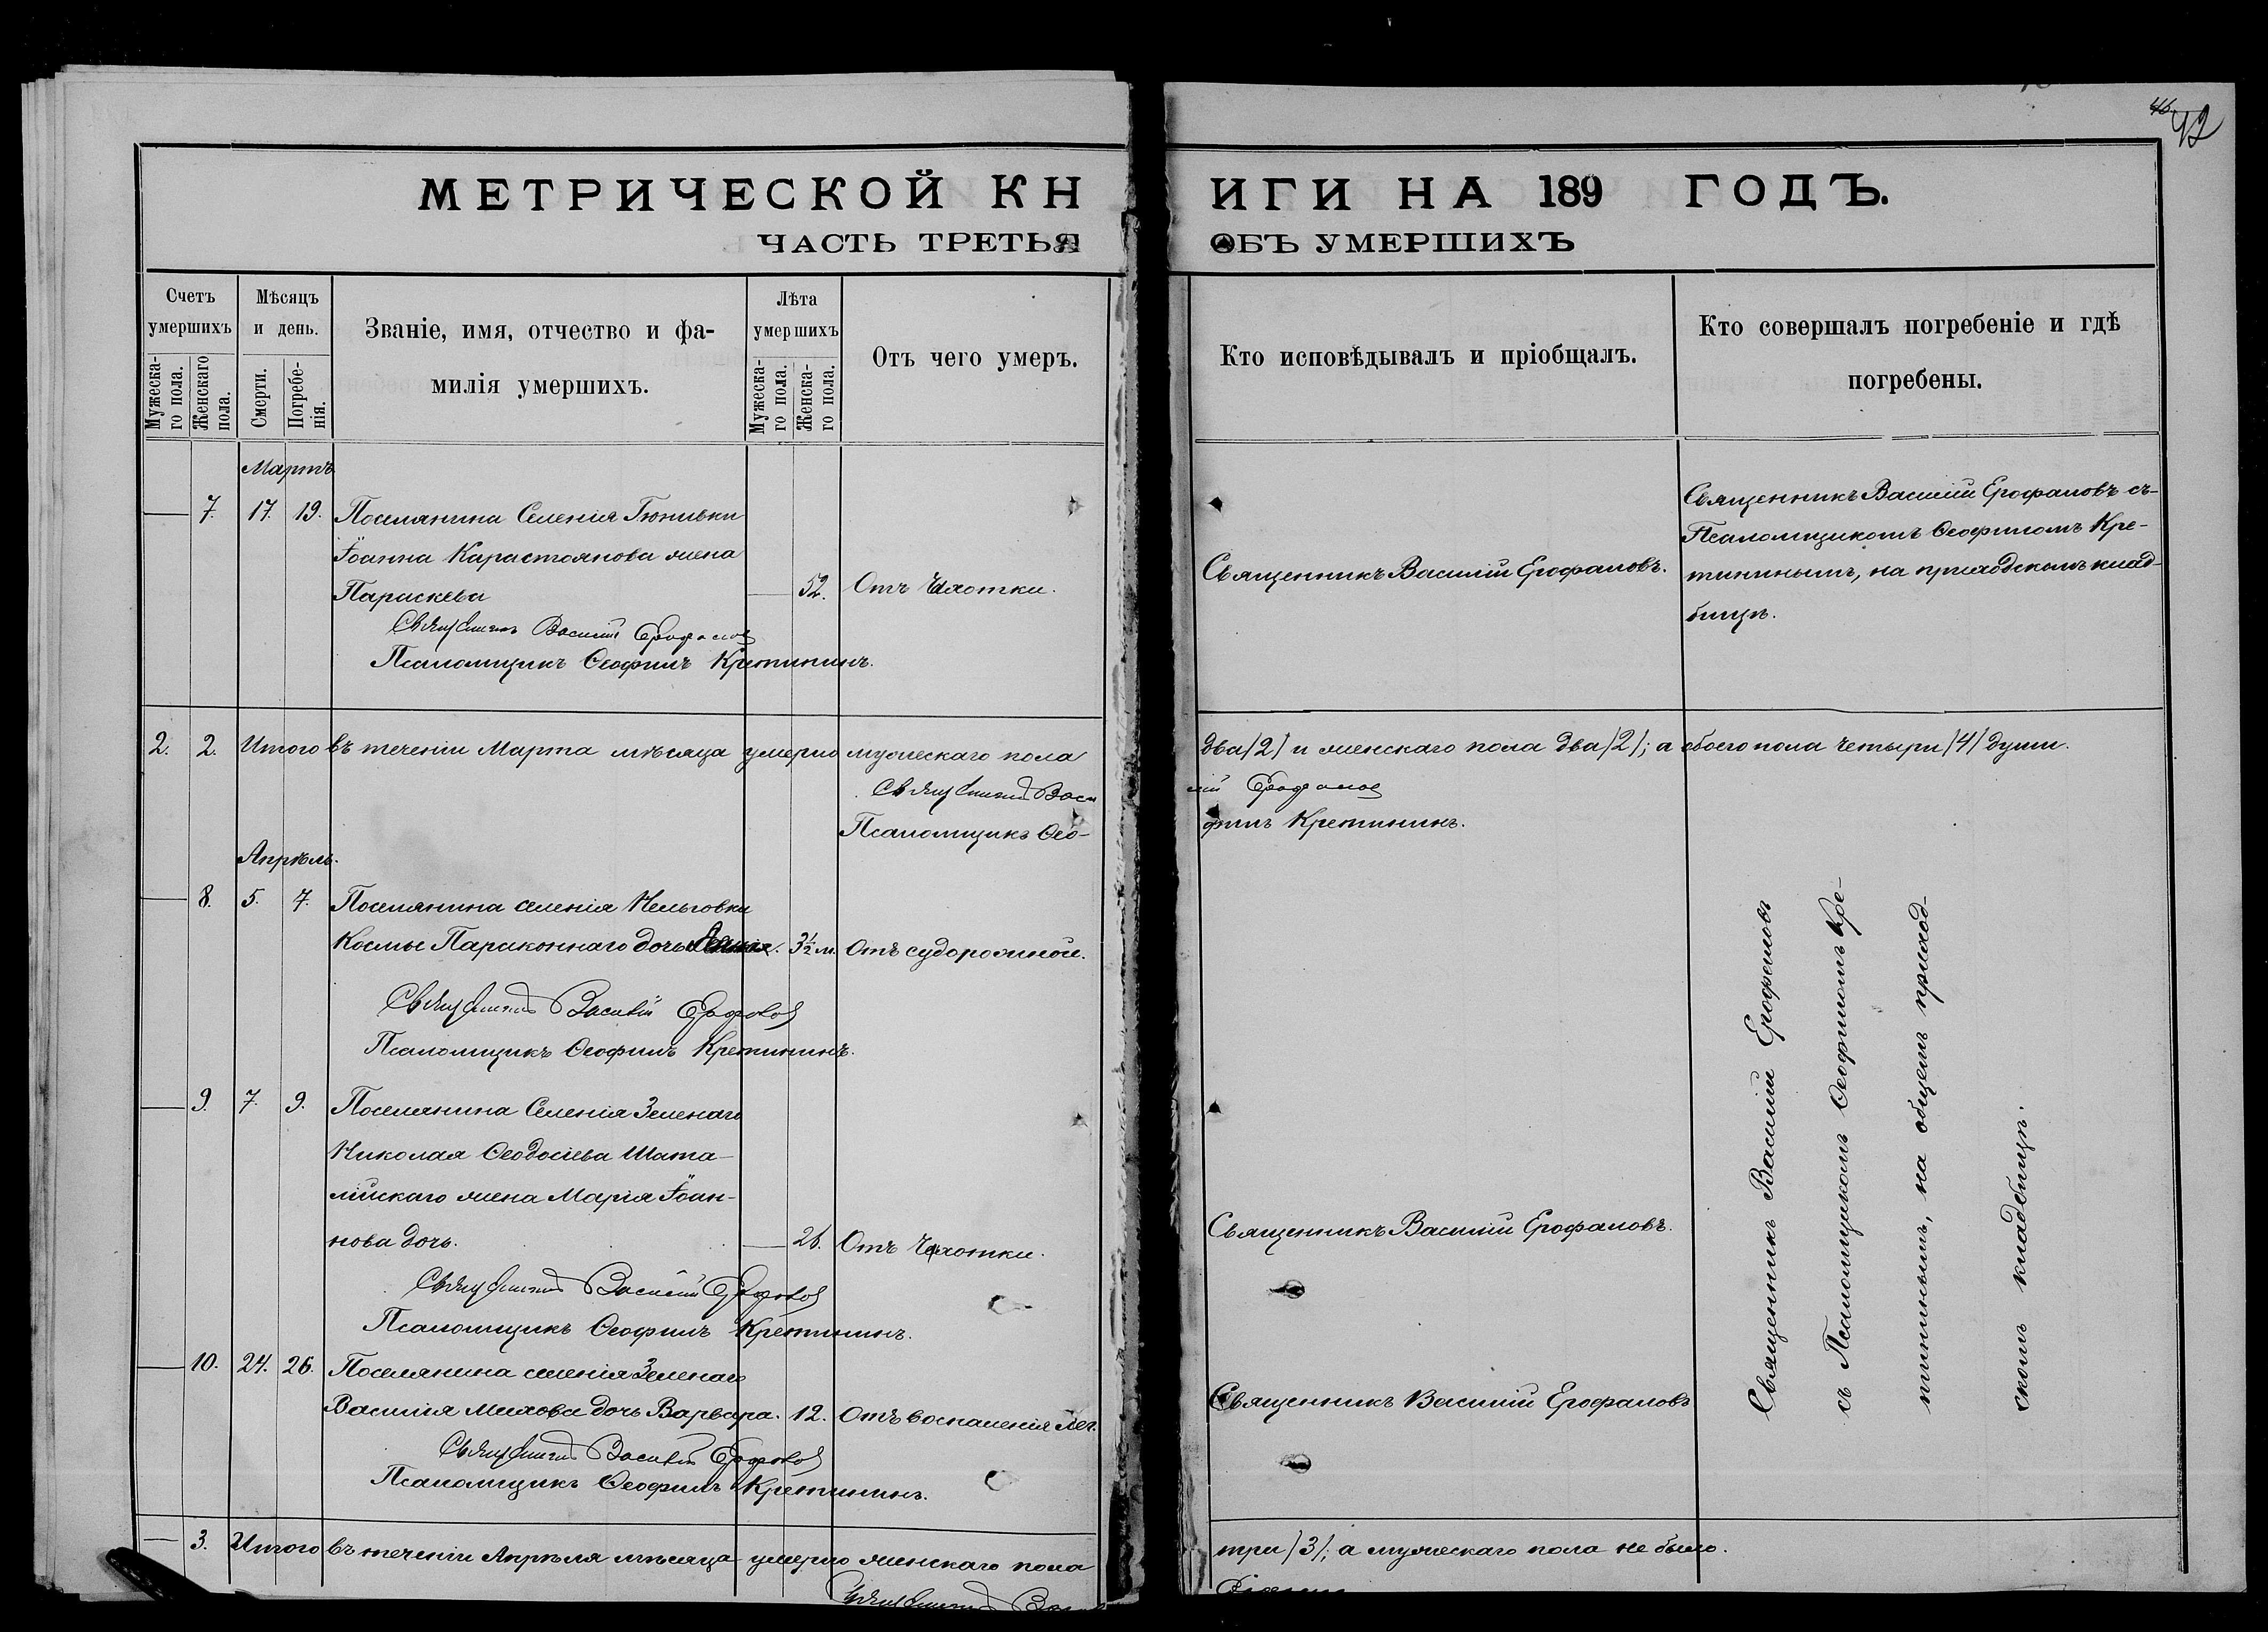 46. 42
МЕТРИЧЕСКОЙ КНИГИ НА 189 ГОДЪ.
ЧАСТЬ ТРЕТЬЯ ОБЪ УМЕРШИХЪ
Счетъ умершихъ
Мужеска-го пола.
Женскаго пола.
Мѣсяцъ и день.
Смерти.
Погребе-нія.
Званіе, имя, отчество и фа-
милія умершихъ.
Лѣта умершихъ
Мужеска-го пола.
Женска-го пола.
Отъ чего умеръ.
Кто исповѣдывалъ и пріобщалъ.
Кто совершалъ погребеніе и гдѣ
погребены.
Мартъ
7. 17. 19. Поселянина Селенія Гюнивки
Іоанна Карастоянова жена
Параскева 52. Отъ Чахотки.
Священникъ Василій Ерофаловъ
Псаломщикъ Ѳеофилъ Кретининъ.
Священникъ Василій Ерофаловъ.
Священникъ Василій Ерофаловъ съ-
Псаломщикомъ Ѳеофиломъ Кре-
тининымъ, на приходскомъ клад-
бищѣ.
2. 2. Итого въ теченіи Марта мѣсяца умерло мужескаго пола два /2/ и женскаго пола два /2/; а обоего пола четыри /4/ души.
Священникъ Василій Ерофаловъ
Псаломщикъ Ѳеофилъ Кретининъ.
Апрѣль.
8. 5. 7. Поселянина селенія Нельговки
Космы Параконнаго дочь 3½ м. Отъ судорожной.
Священникъ Василій Ерофаловъ
Псаломщикъ Ѳеофилъ Кретининъ.
9. 7. 9. Поселянина Селенія Зеленаго
Николая Ѳеодосіева Шата-
лійскаго жена Марія Іоан-
нова дочь. 26. Отъ Чахотки.
Священникъ Василій Ерофаловъ
Псаломщикъ Ѳеофилъ Кретининъ.
Священникъ Василій Ерофаловъ.
10. 24. 26. Поселянина селенія Зеленаго
Василія Милова дочь Варвара. 12. Отъ воспаленія лег.
Священникъ Василій Ерофаловъ
Псаломщикъ Ѳеофилъ Кретининъ.
Священникъ Василій Ерофаловъ
Священникъ Василій Ерофаловъ
съ Псаломщикомъ Ѳеофиломъ Кре-
тининымъ, на общемъ приход-
скомъ кладбищѣ.
3. Итого въ теченіи Апрѣля мѣсяца умерло женскаго пола три /3/; а мужескаго пола не было.
Священникъ